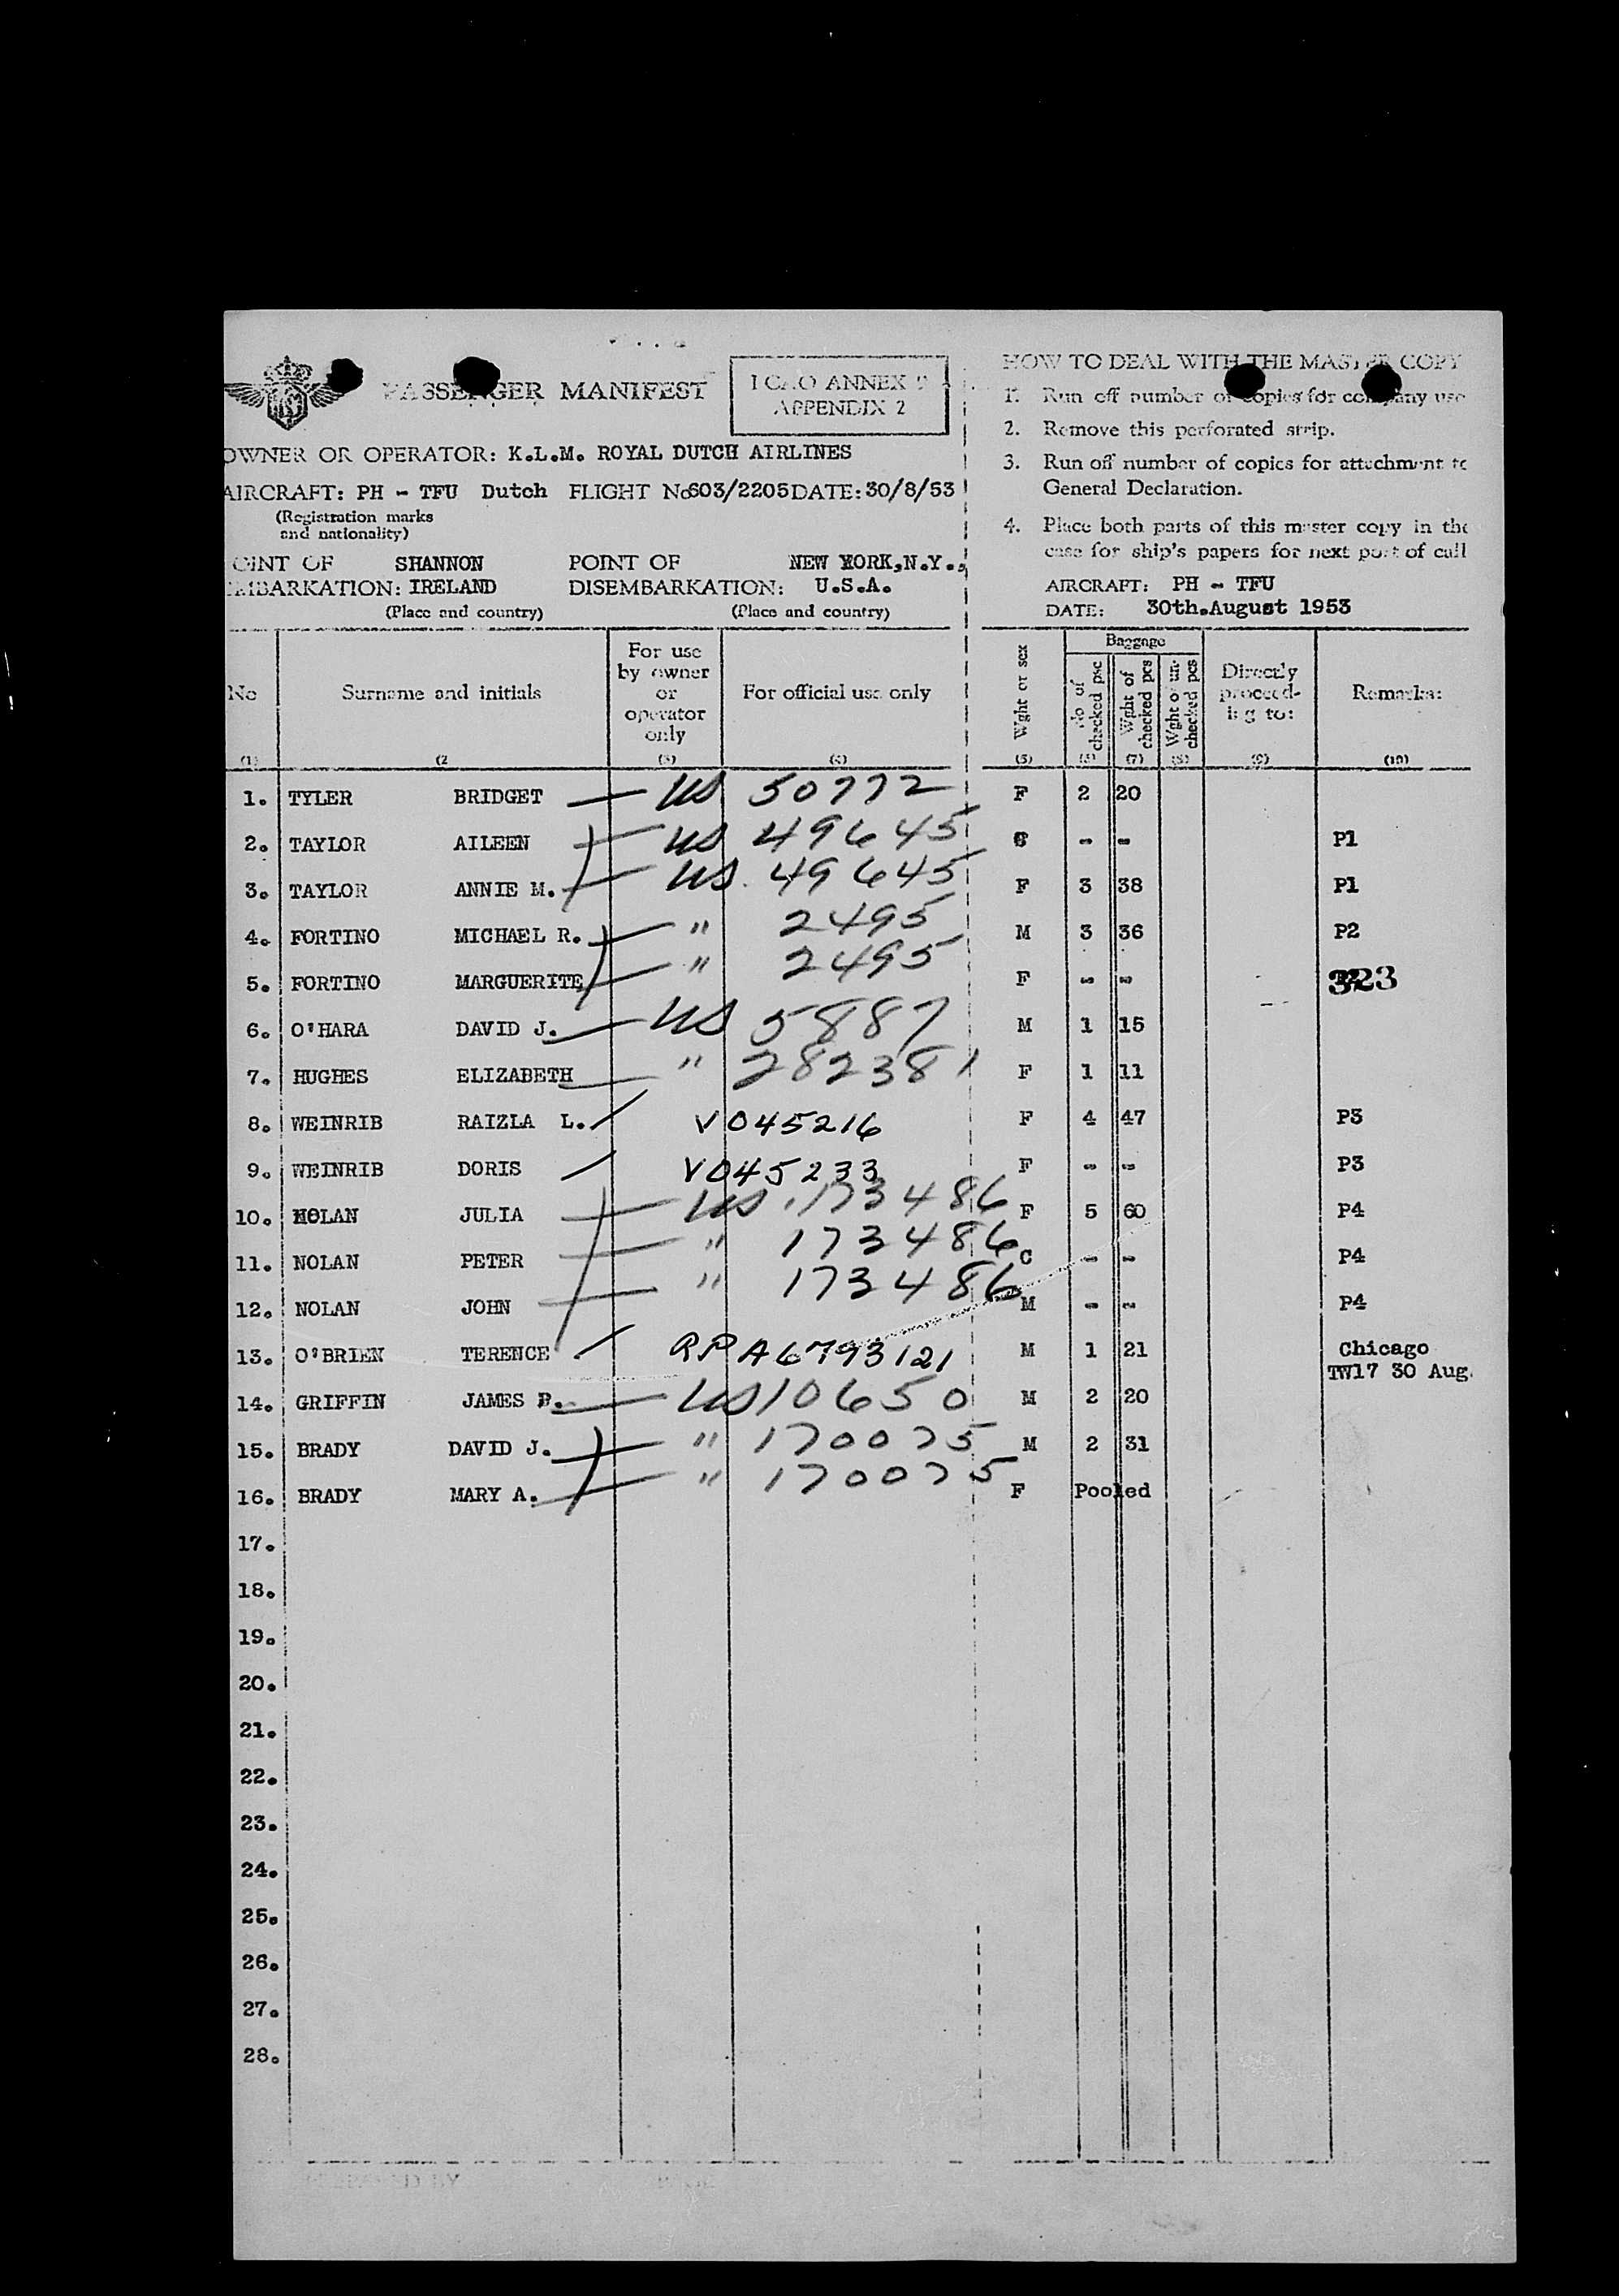 PASSENGER MANIFEST
ICAO ANNEX 9
APPENDIX 2
OWNER OR OPERATOR: K.L.M. ROYAL DUTCH AIRLINES
AIRCRAFT: PH - TFU Dutch FLIGHT No603/2205 DATE: 30/8/53
(Registration marks
and nationality)
POINT OF SHANNON POINT OF NEW YORK, N.Y.,
EMBARKATION: IRELAND DISEMBARKATION: U.S.A.
(Place and country) (Place and country)
HOW TO DEAL WITH THE MASTER COPY
1. Run off number of copies for company use
2. Remove this perforated strip.
3. Run off number of copies for attachment to
General Declaration.
4. Place both parts of this master copy in the
case for ship's papers for next port of call
AIRCRAFT: PH - TFU
DATE: 30th.August 1953
No Surname and initials For use by owner or operator only For official use only Wght or sex Baggage No of checked pcs Wght of checked pcs Wght of un-checked pcs Directly proceed-ing to: Remarks:
(1) (2 (3) (4) (5) (6) (7) (8) (9) (10)
1. TYLER BRIDGET US 50772 F 2 20
2. TAYLOR AILEEN US 49645 - - P1
3. TAYLOR ANNIE M. US 49645 F 3 38 P1
4. FORTINO MICHAEL R. " 2495 M 3 36 P2
5. FORTINO MARGUERITE " 2495 F - - 323
6. O'HARA DAVID J. US 5887 M 1 15
7. HUGHES ELIZABETH " 282381 F 1 11
8. WEINRIB RAIZLA L. V045216 F 4 47 P3
9. WEINRIB DORIS V045233 F - - P3
10. NOLAN JULIA US 173486 F 5 60 P4
11. NOLAN PETER " 173486 C - - P4
12. NOLAN JOHN " 173486 M - - P4
13. O'BRIEN TERENCE RP A6793121 M 1 21 Chicago
TW17 30 Aug.
14. GRIFFIN JAMES P. US 10650 M 2 20
15. BRADY DAVID J. " 170075 M 2 31
16. BRADY MARY A. " 170075 F Pooled
17.
18.
19.
20.
21.
22.
23.
24.
25.
26.
27.
28.